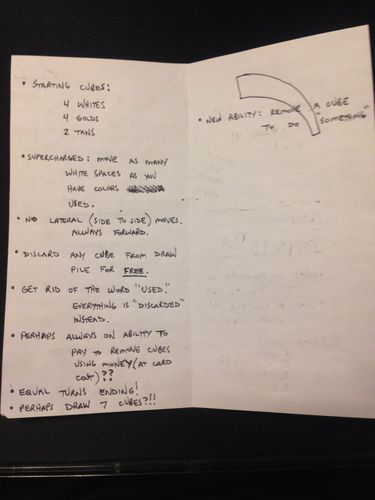 • STARTING CUBES:
4 WHITES
4 GOLDS
2 TANS
• SUPERCHARGED: MOVE AS MANY
WHITE SPACES AS YOU
HAVE COLORS
USED.
• NO LATERAL (SIDE TO SIDE) MOVES.
ALWAYS FORWARD.
• DISCARD ANY CUBE FROM DRAW
PILE FOR FREE.
• GET RID OF THE WORD "USED."
EVERYTHING IS "DISCARDED"
INSTEAD.
• PERHAPS ALWAYS ON ABILITY TO
PAY TO REMOVE CUBES
USING MONEY (AT CARD
COST)??
• EQUAL TURNS ENDING!
• PERHAPS DRAW 7 CUBES?!!
• NEW ABILITY: REMOVE A CUBE
TO DO "SOMETHING"